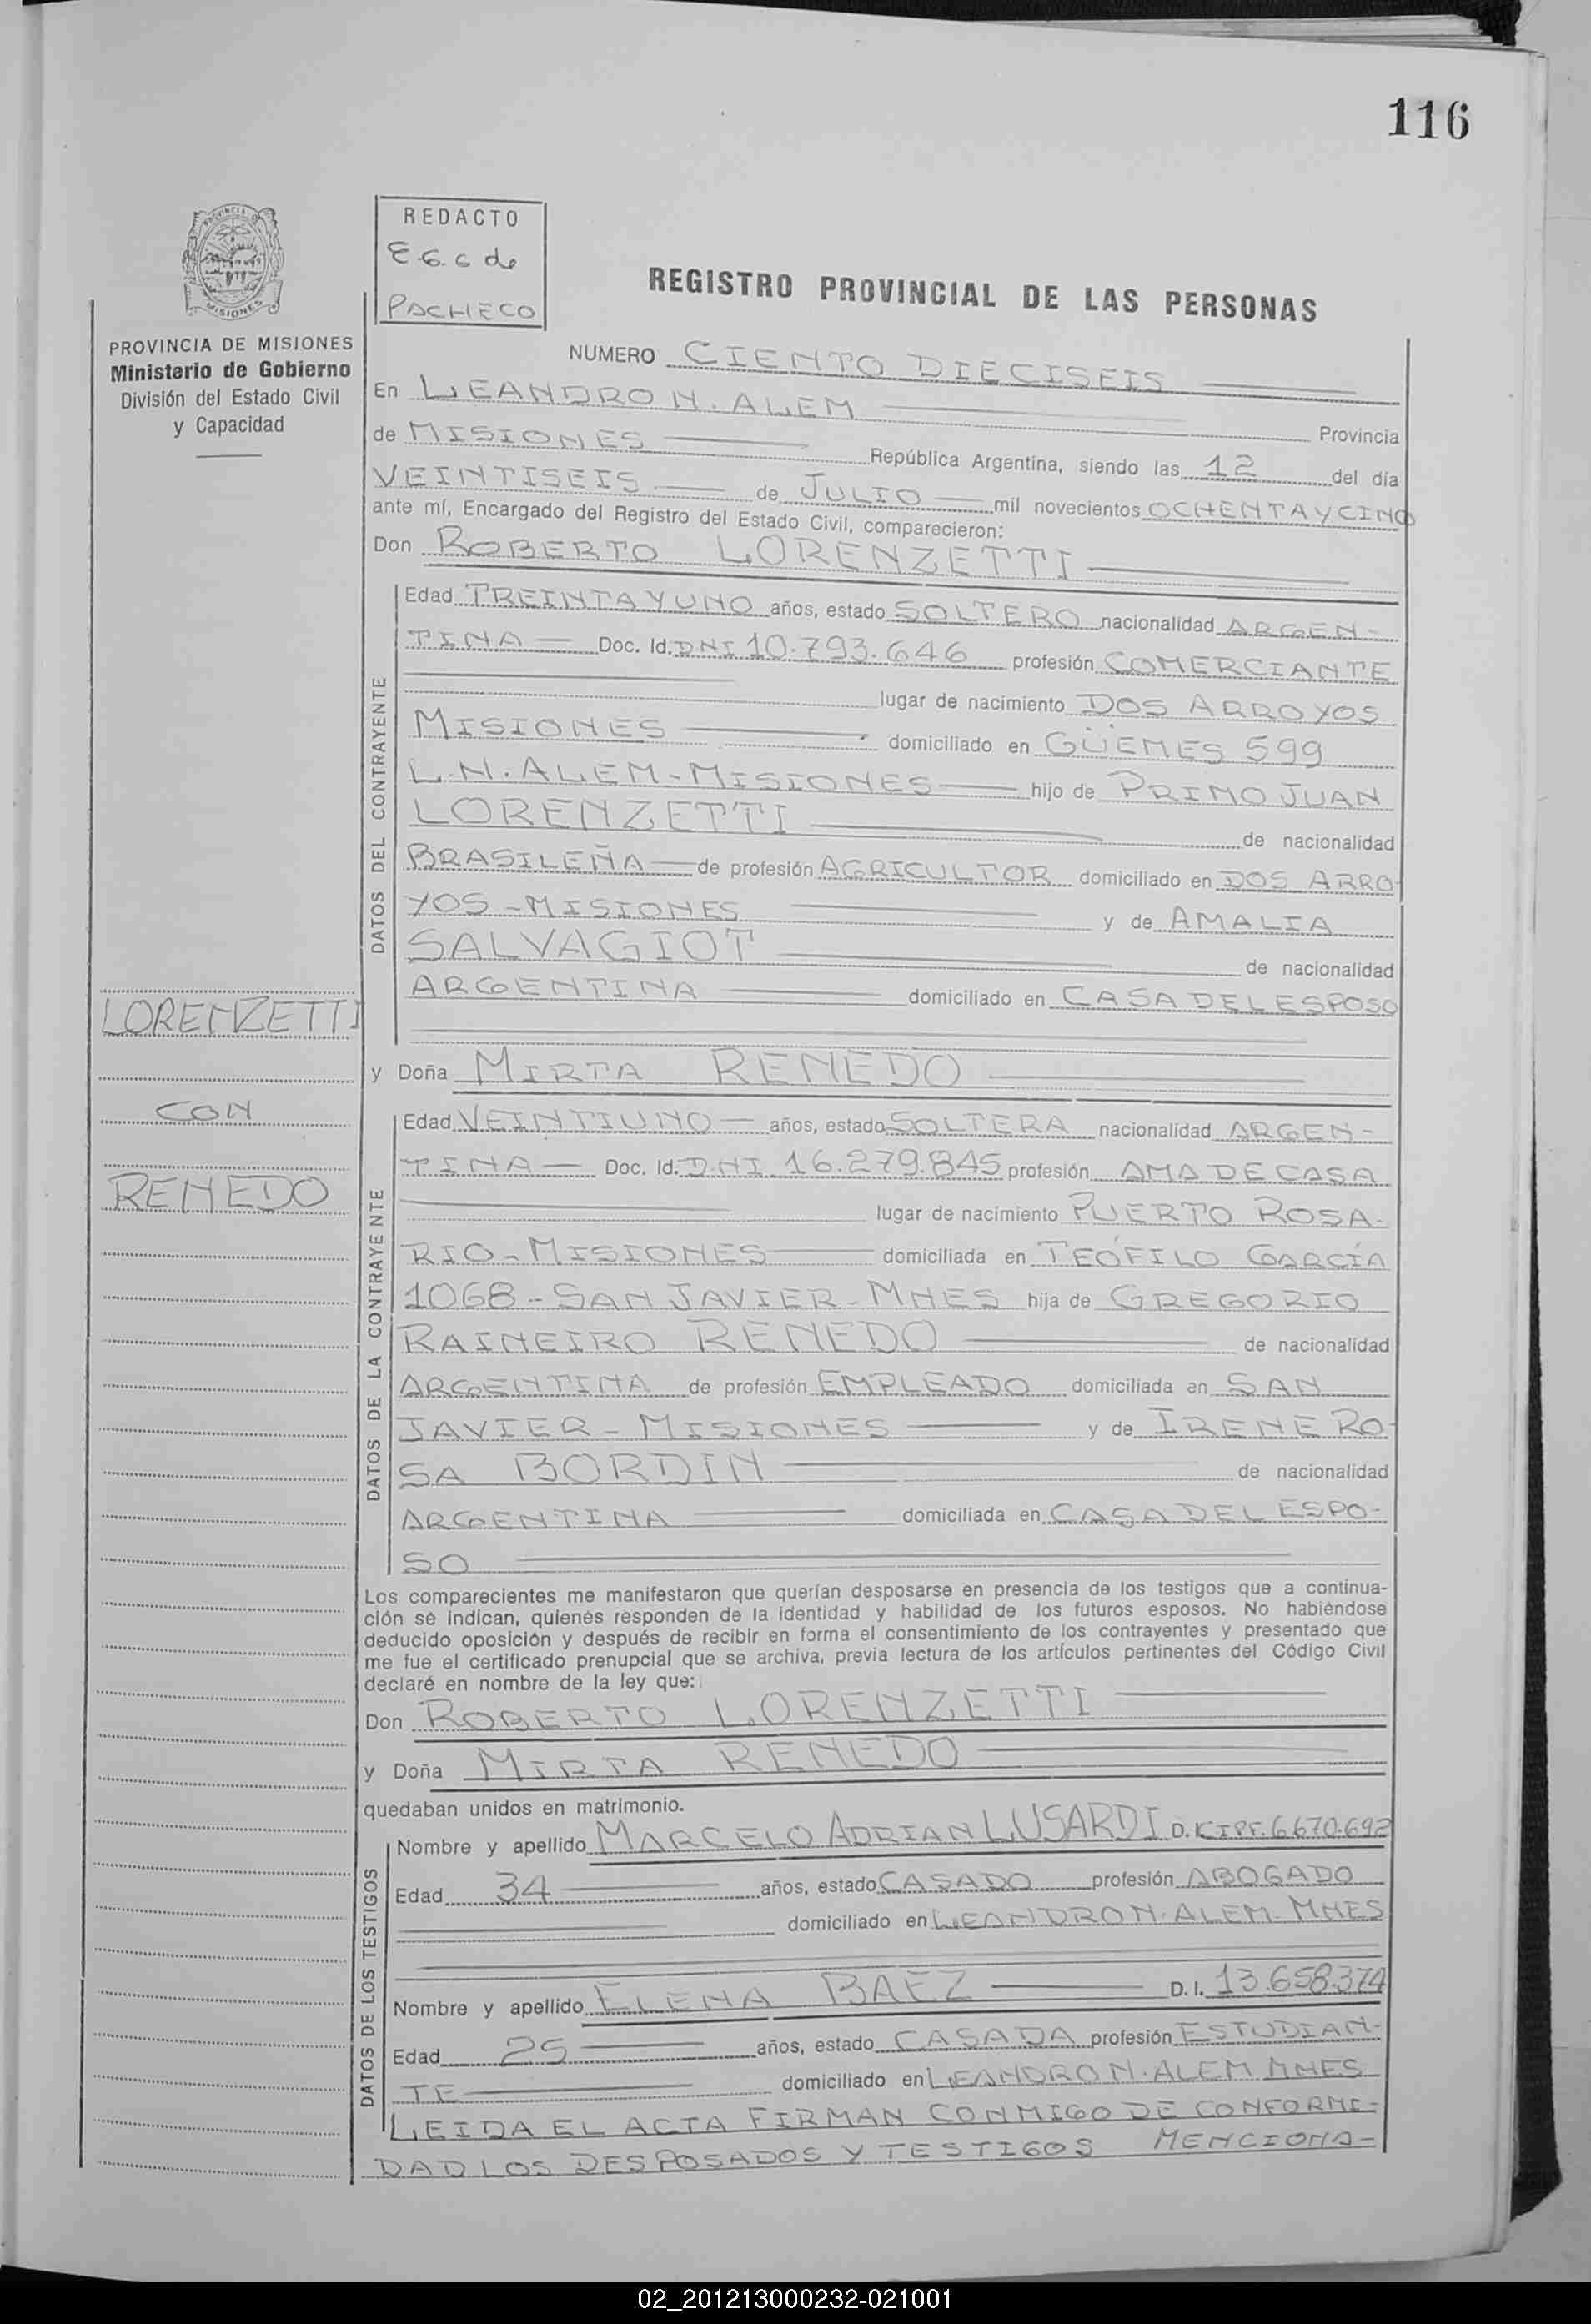 116
REDACTO
E.G.C de
PACHECO
PROVINCIA DE MISIONES
Ministerio de Gobierno
División del Estado Civil
y Capacidad
REGISTRO PROVINCIAL DE LAS PERSONAS
NUMERO CIENTO DIECISEIS
En LEANDRO N. ALEM Provincia
de MISIONES República Argentina, siendo las 12 del día
VEINTISEIS de JULIO mil novecientos OCHENTA Y CINCO
ante mí, Encargado del Registro del Estado Civil, comparecieron:
Don ROBERTO LORENZETTI
DATOS DEL CONTRAYENTE
Edad TREINTA Y UNO años, estado SOLTERO nacionalidad ARGEN-
TINA Doc. Id. DNI 10.793.646 profesión COMERCIANTE
lugar de nacimiento DOS ARROYOS
MISIONES domiciliado en GÜEMES 599
L.N. ALEM-MISIONES hijo de PRIMO JUAN
LORENZETTI de nacionalidad
BRASILEÑA de profesión AGRICULTOR domiciliado en DOS ARRO-
YOS-MISIONES y de AMALIA
SALVAGIOT de nacionalidad
ARGENTINA domiciliado en CASA DEL ESPOSO
LORENZETTI
CON
RENEDO
y Doña MIRTA RENEDO
DATOS DE LA CONTRAYENTE
Edad VEINTIUNO años, estado SOLTERA nacionalidad ARGEN-
TINA Doc. Id. D.N.I 16.279.845 profesión AMA DE CASA
lugar de nacimiento PUERTO ROSA-
RIO-MISIONES domiciliada en TEÓFILO GARCÍA
1068-SAN JAVIER-MNES hija de GREGORIO
RAINEIRO RENEDO de nacionalidad
ARGENTINA de profesión EMPLEADO domiciliada en SAN
JAVIER-MISIONES y de IRENE RO-
SA BORDIN de nacionalidad
ARGENTINA domiciliada en CASA DEL ESPO-
SO
Los comparecientes me manifestaron que querían desposarse en presencia de los testigos que a continua-
ción se indican, quienes responden de la identidad y habilidad de los futuros esposos. No habiéndose
deducido oposición y después de recibir en forma el consentimiento de los contrayentes y presentado que
me fue el certificado prenupcial que se archiva, previa lectura de los artículos pertinentes del Código Civil
declaré en nombre de la ley que:
Don ROBERTO LORENZETTI
y Doña MIRTA RENEDO
quedaban unidos en matrimonio.
DATOS DE LOS TESTIGOS
Nombre y apellido MARCELO ADRIAN LUSARDI D.I. C.I.P.F. 6670.692
Edad 34 años, estado CASADO profesión ABOGADO
domiciliado en LEANDRO N. ALEM-MNES
Nombre y apellido ELENA BAEZ D.I. 13.658.374
Edad 25 años, estado CASADA profesión ESTUDIAN-
TE domiciliado en LEANDRO N. ALEM MNES
LEIDA EL ACTA FIRMAN CONMIGO DE CONFORMI-
DAD LOS DESPOSADOS Y TESTIGOS MENCIONA-
02_201213000232-021001